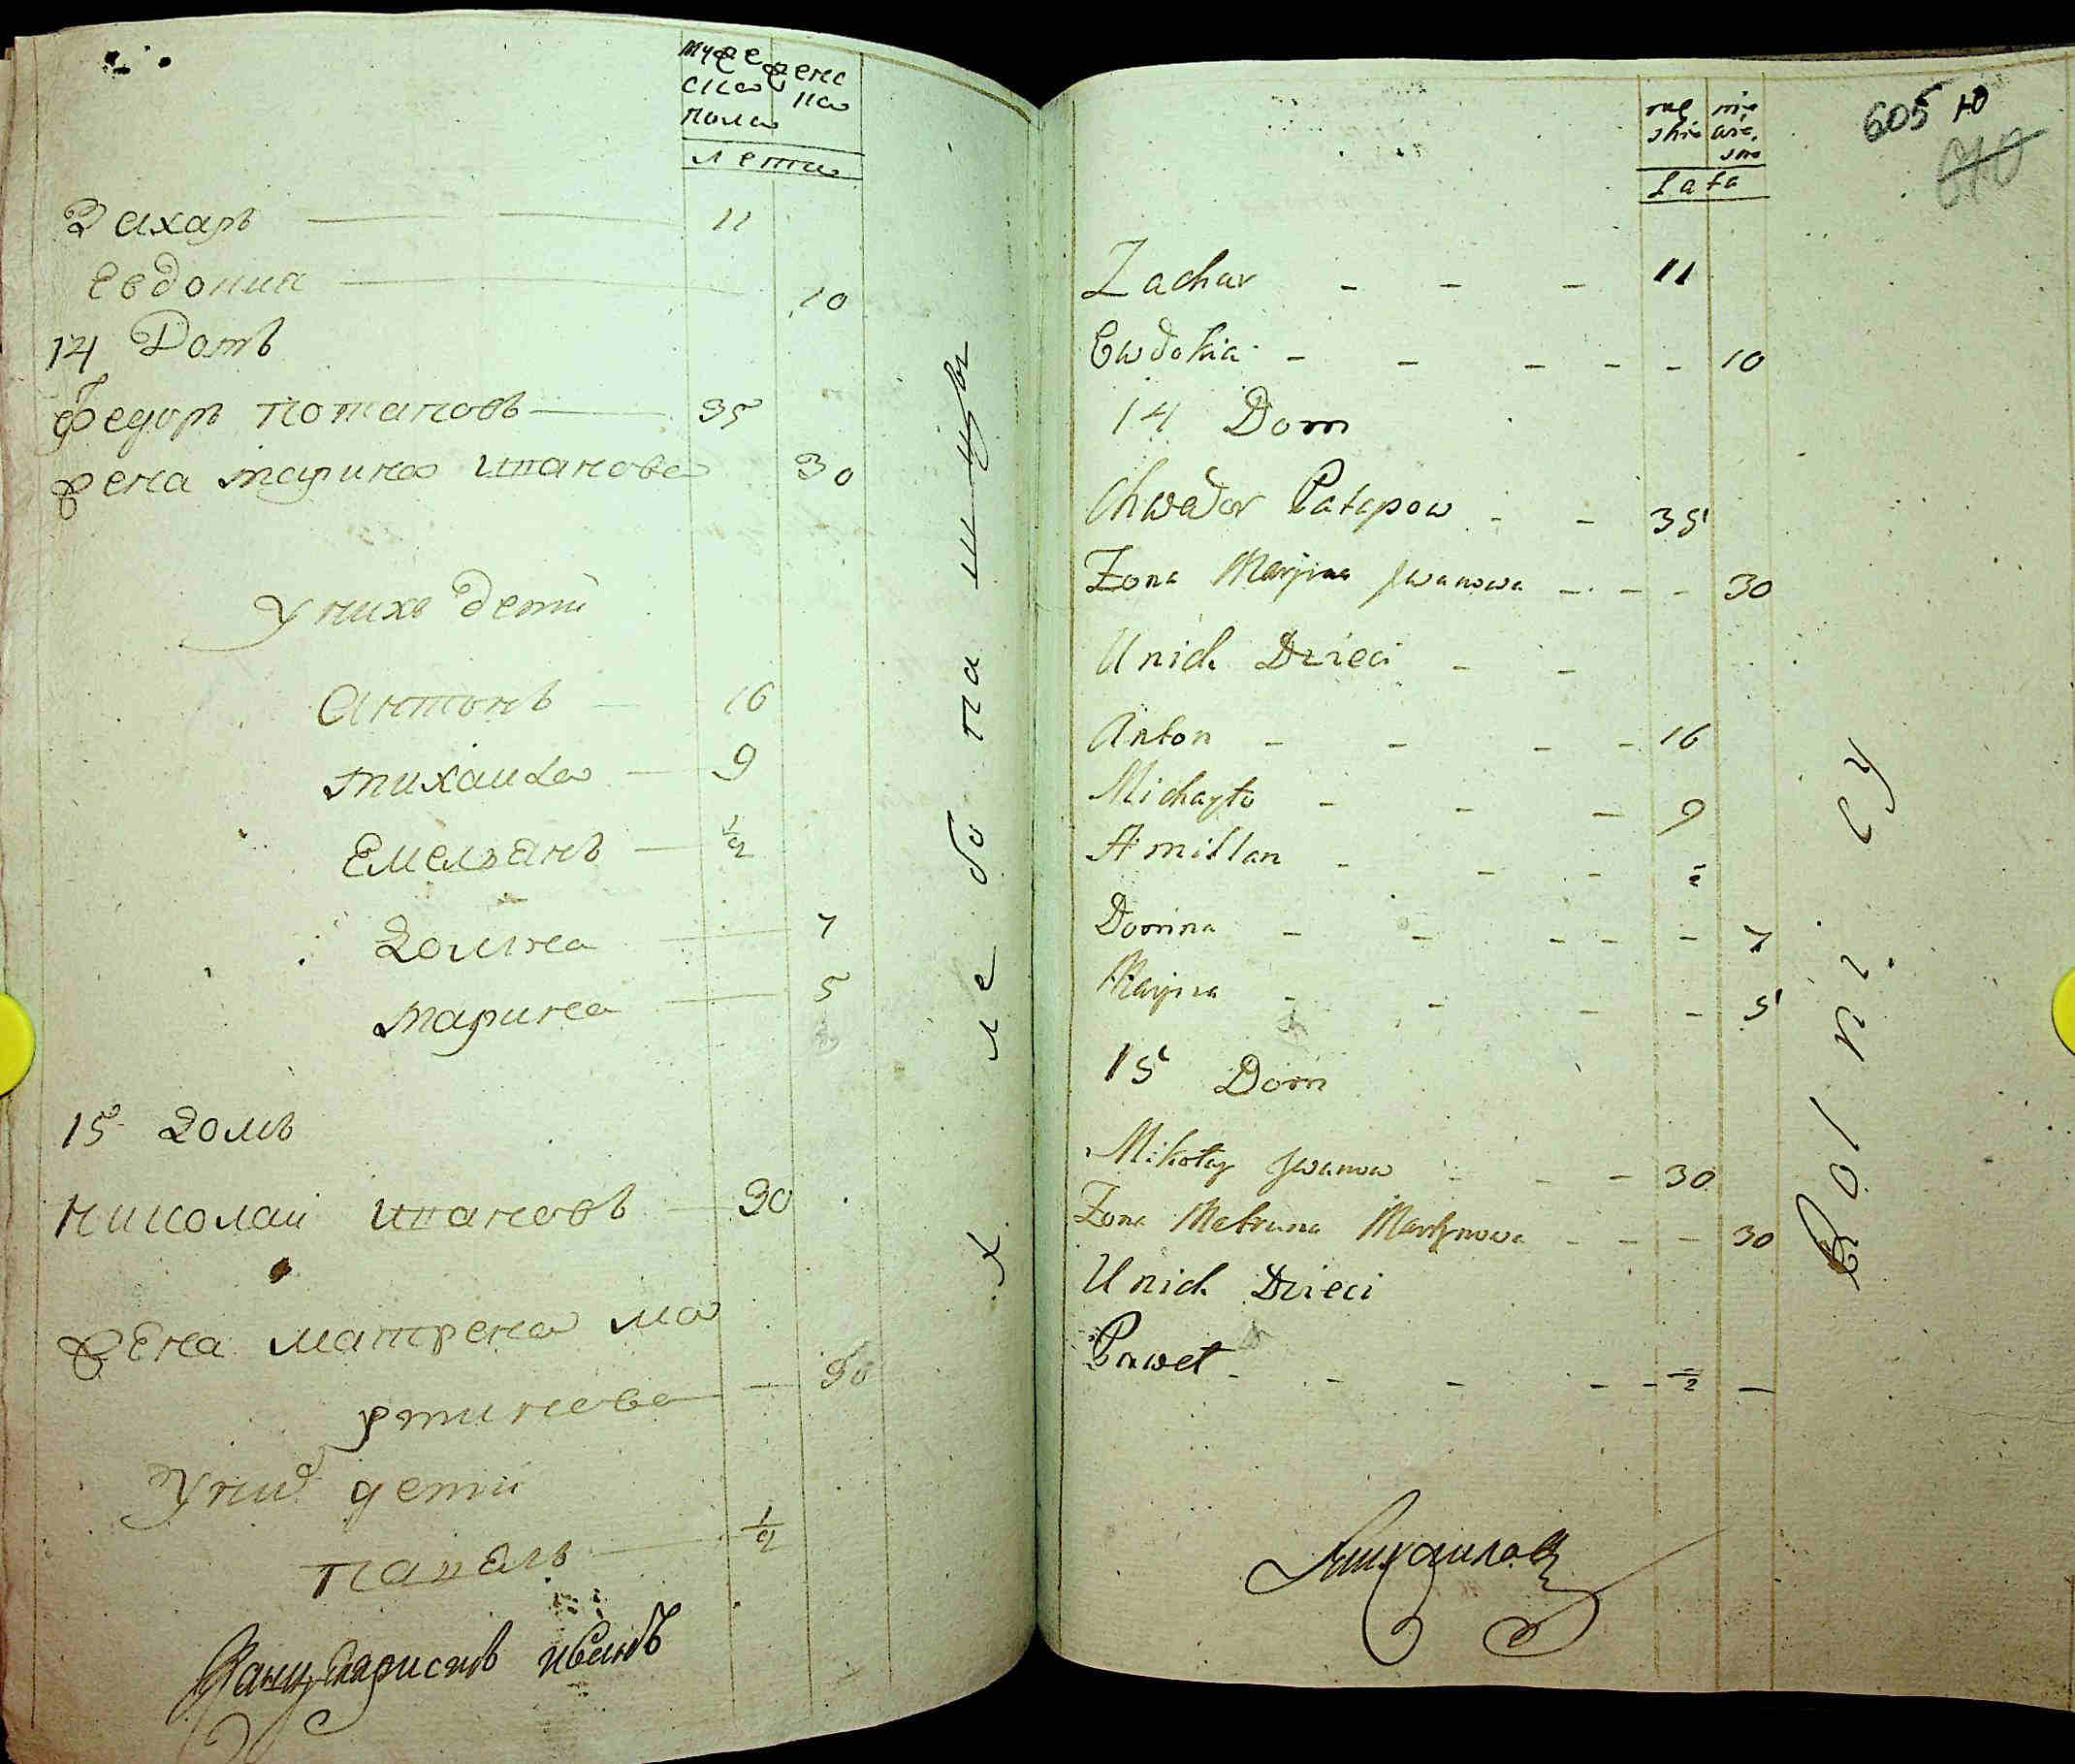 муже женс
ска ка
пола
лета
Захаръ 11
Евдокиа 10
14 Домъ
Федоръ потаповъ 35
жена марина ивановa 30
У нихъ дети
Антонъ 16
михаила 9
Емельянъ 1/2
Домна 7
марина 5
15 Домъ
николаи ивановъ 30
жена матрена ма
ртинова 30
У них дети
павелъ 1/2
Канцеляристъ Иванъ
хлебопашцы
605
670
Lata
Zachar - - - 11
Ewdokia - - - - - 10
14 Dom
Chwedor Patapow - - 35
Zona Maryna Jwanowa - - - 30
U nich Dzieci - -
Anton - - - - 16
Michayło - - - 9
Amillan - - - 1/2
Domna - - - - - 7
Maryna - - - - 5
15 Dom
Mikołay Jwanow - - - 30
Zona Matruna Martynowa - - - 30
U nich Dzieci
Paweł - - - - - 1/2 -
Михаиловъ
Rolnicy